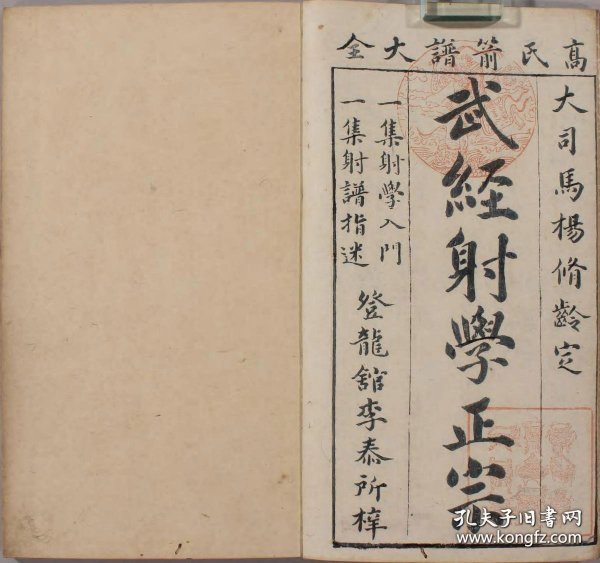 高氏箭譜大全
大司馬楊脩齡定
武經射學正宗
一集射學入門
一集射譜指迷
登龍舘李泰所梓
孔夫子旧书网
www.kongfz.com